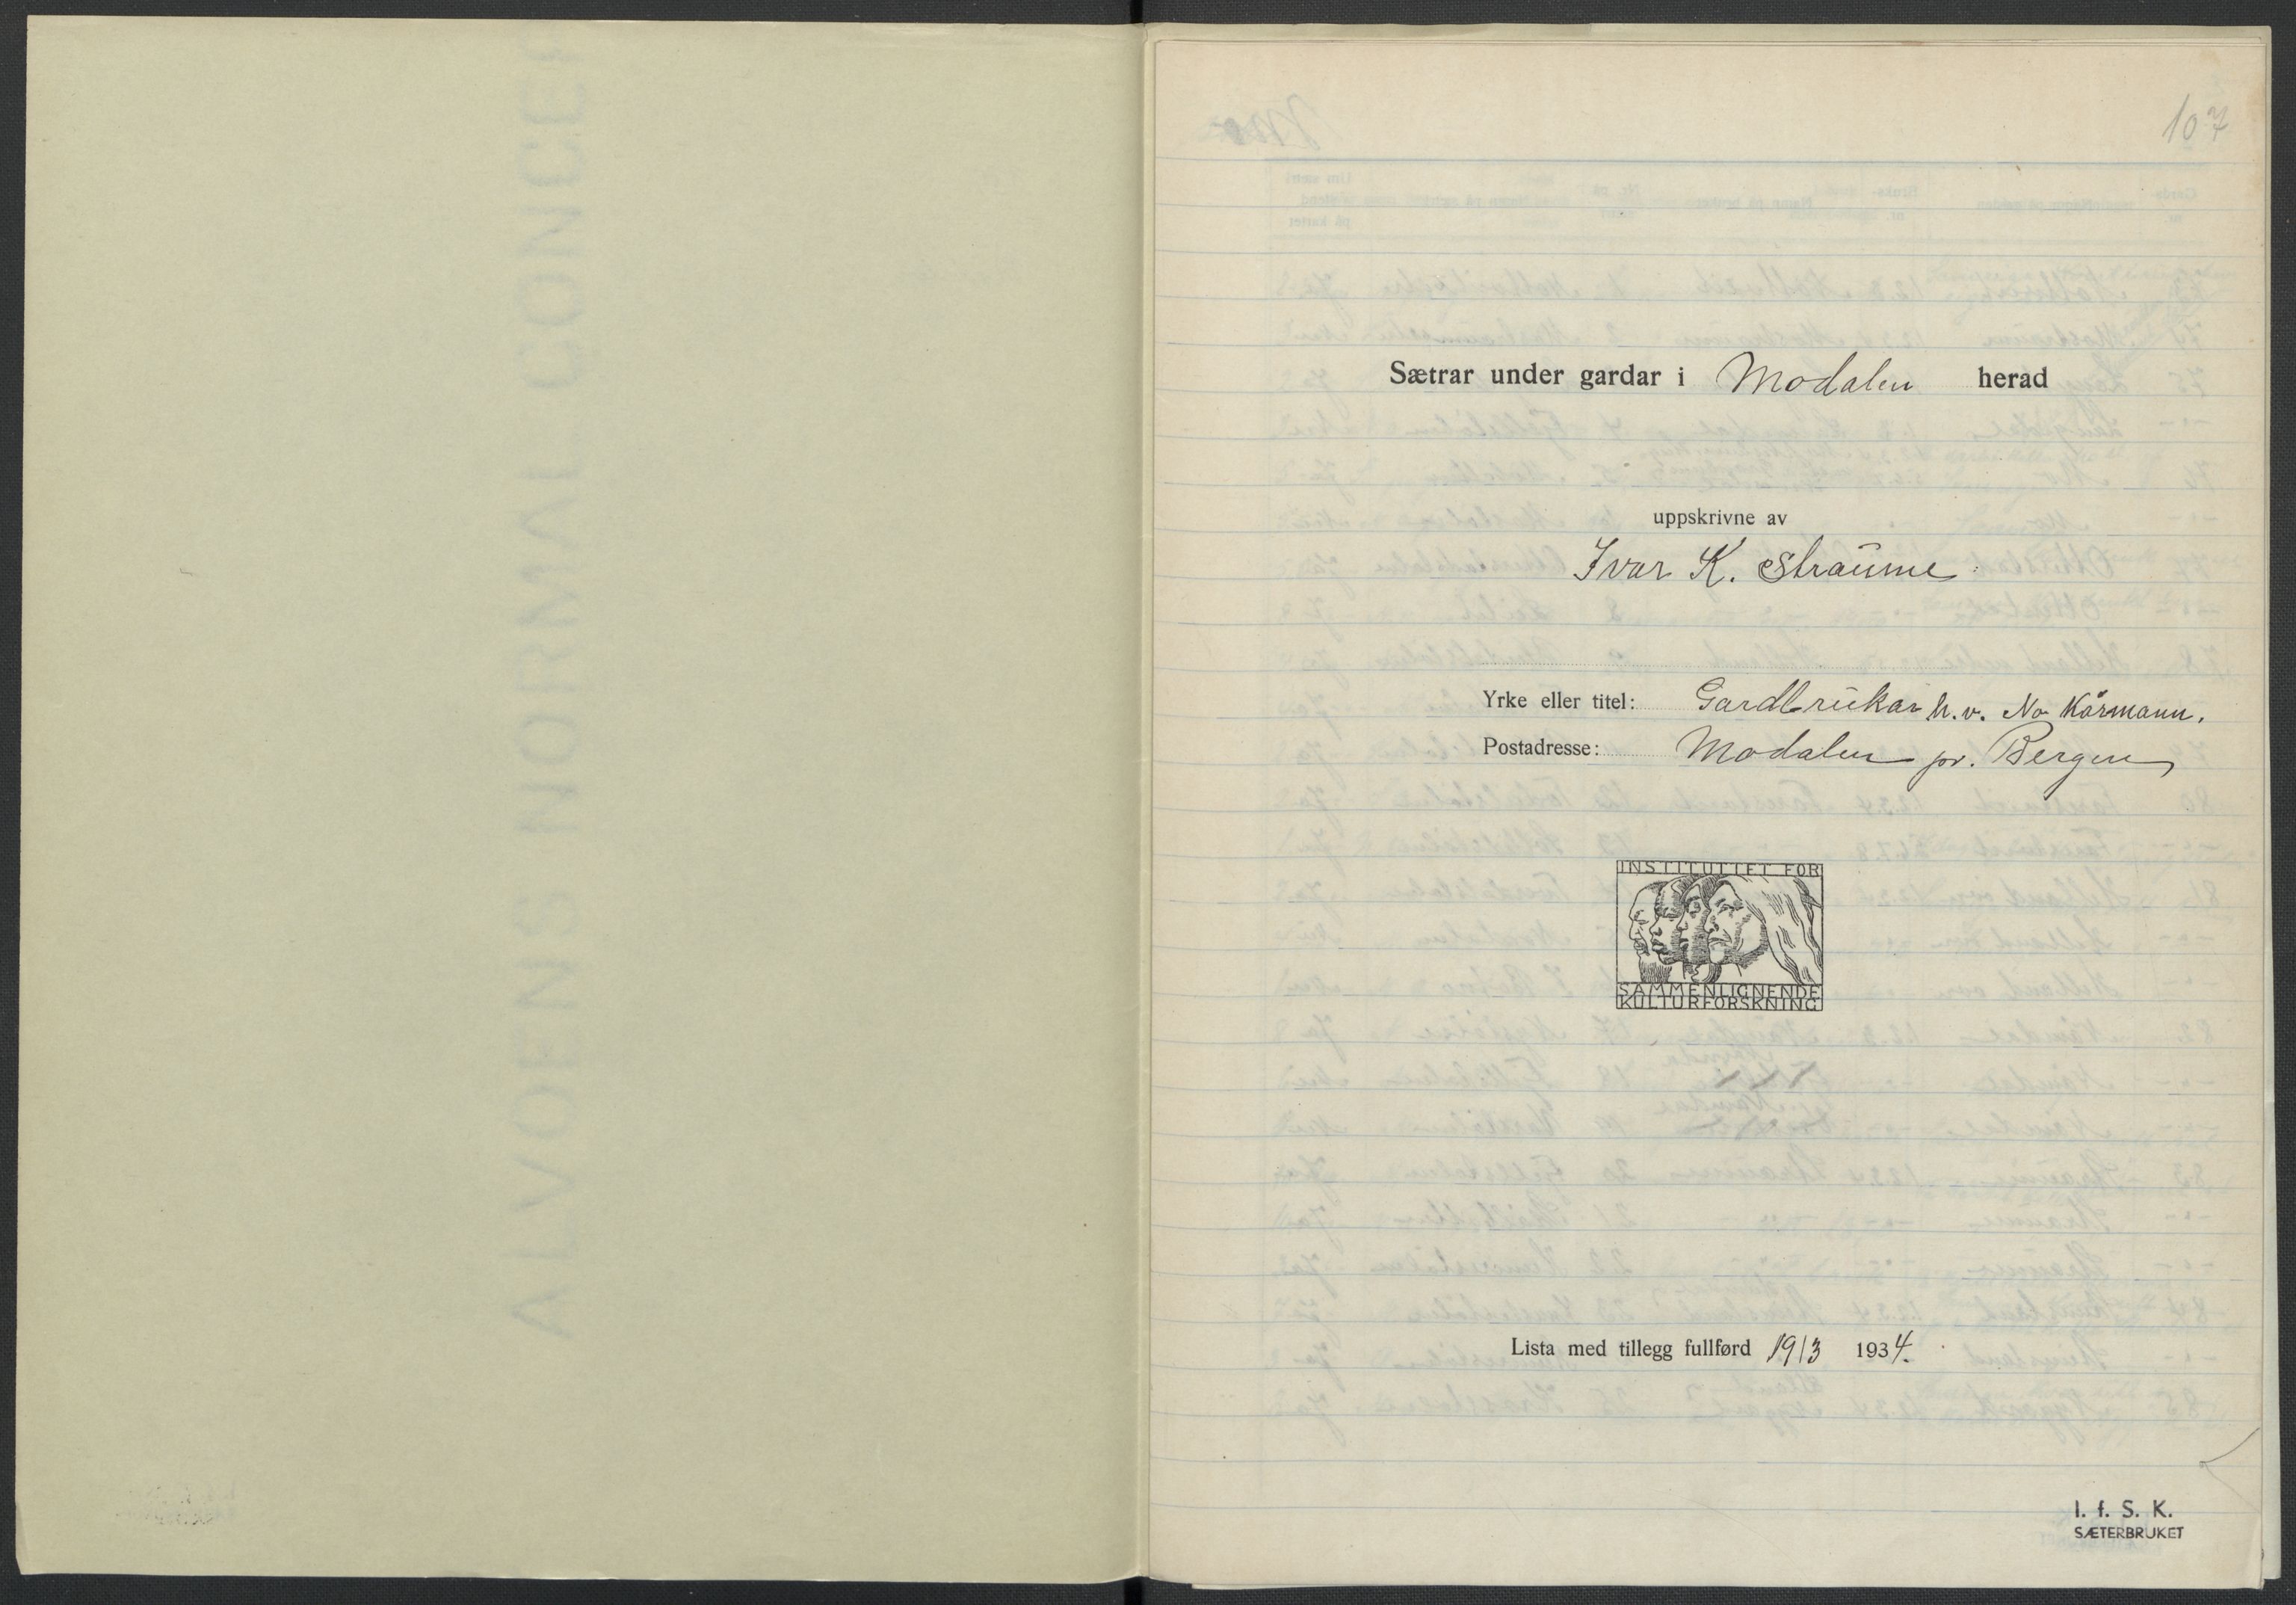 107
Sætrar under gardar i Modalen herad
uppskrivne av
Ivar K. Straume
Yrke eller titel: Gardbrukar h.v. No Kårmann.
Postadresse: Modalen pr. Bergen
INSTITUTTET FOR
SAMMENLIGNENDE
KULTURFORSKNING
Lista med tillegg fullførd 19/3 1934.
I. f. S. K.
SÆTERBRUKET